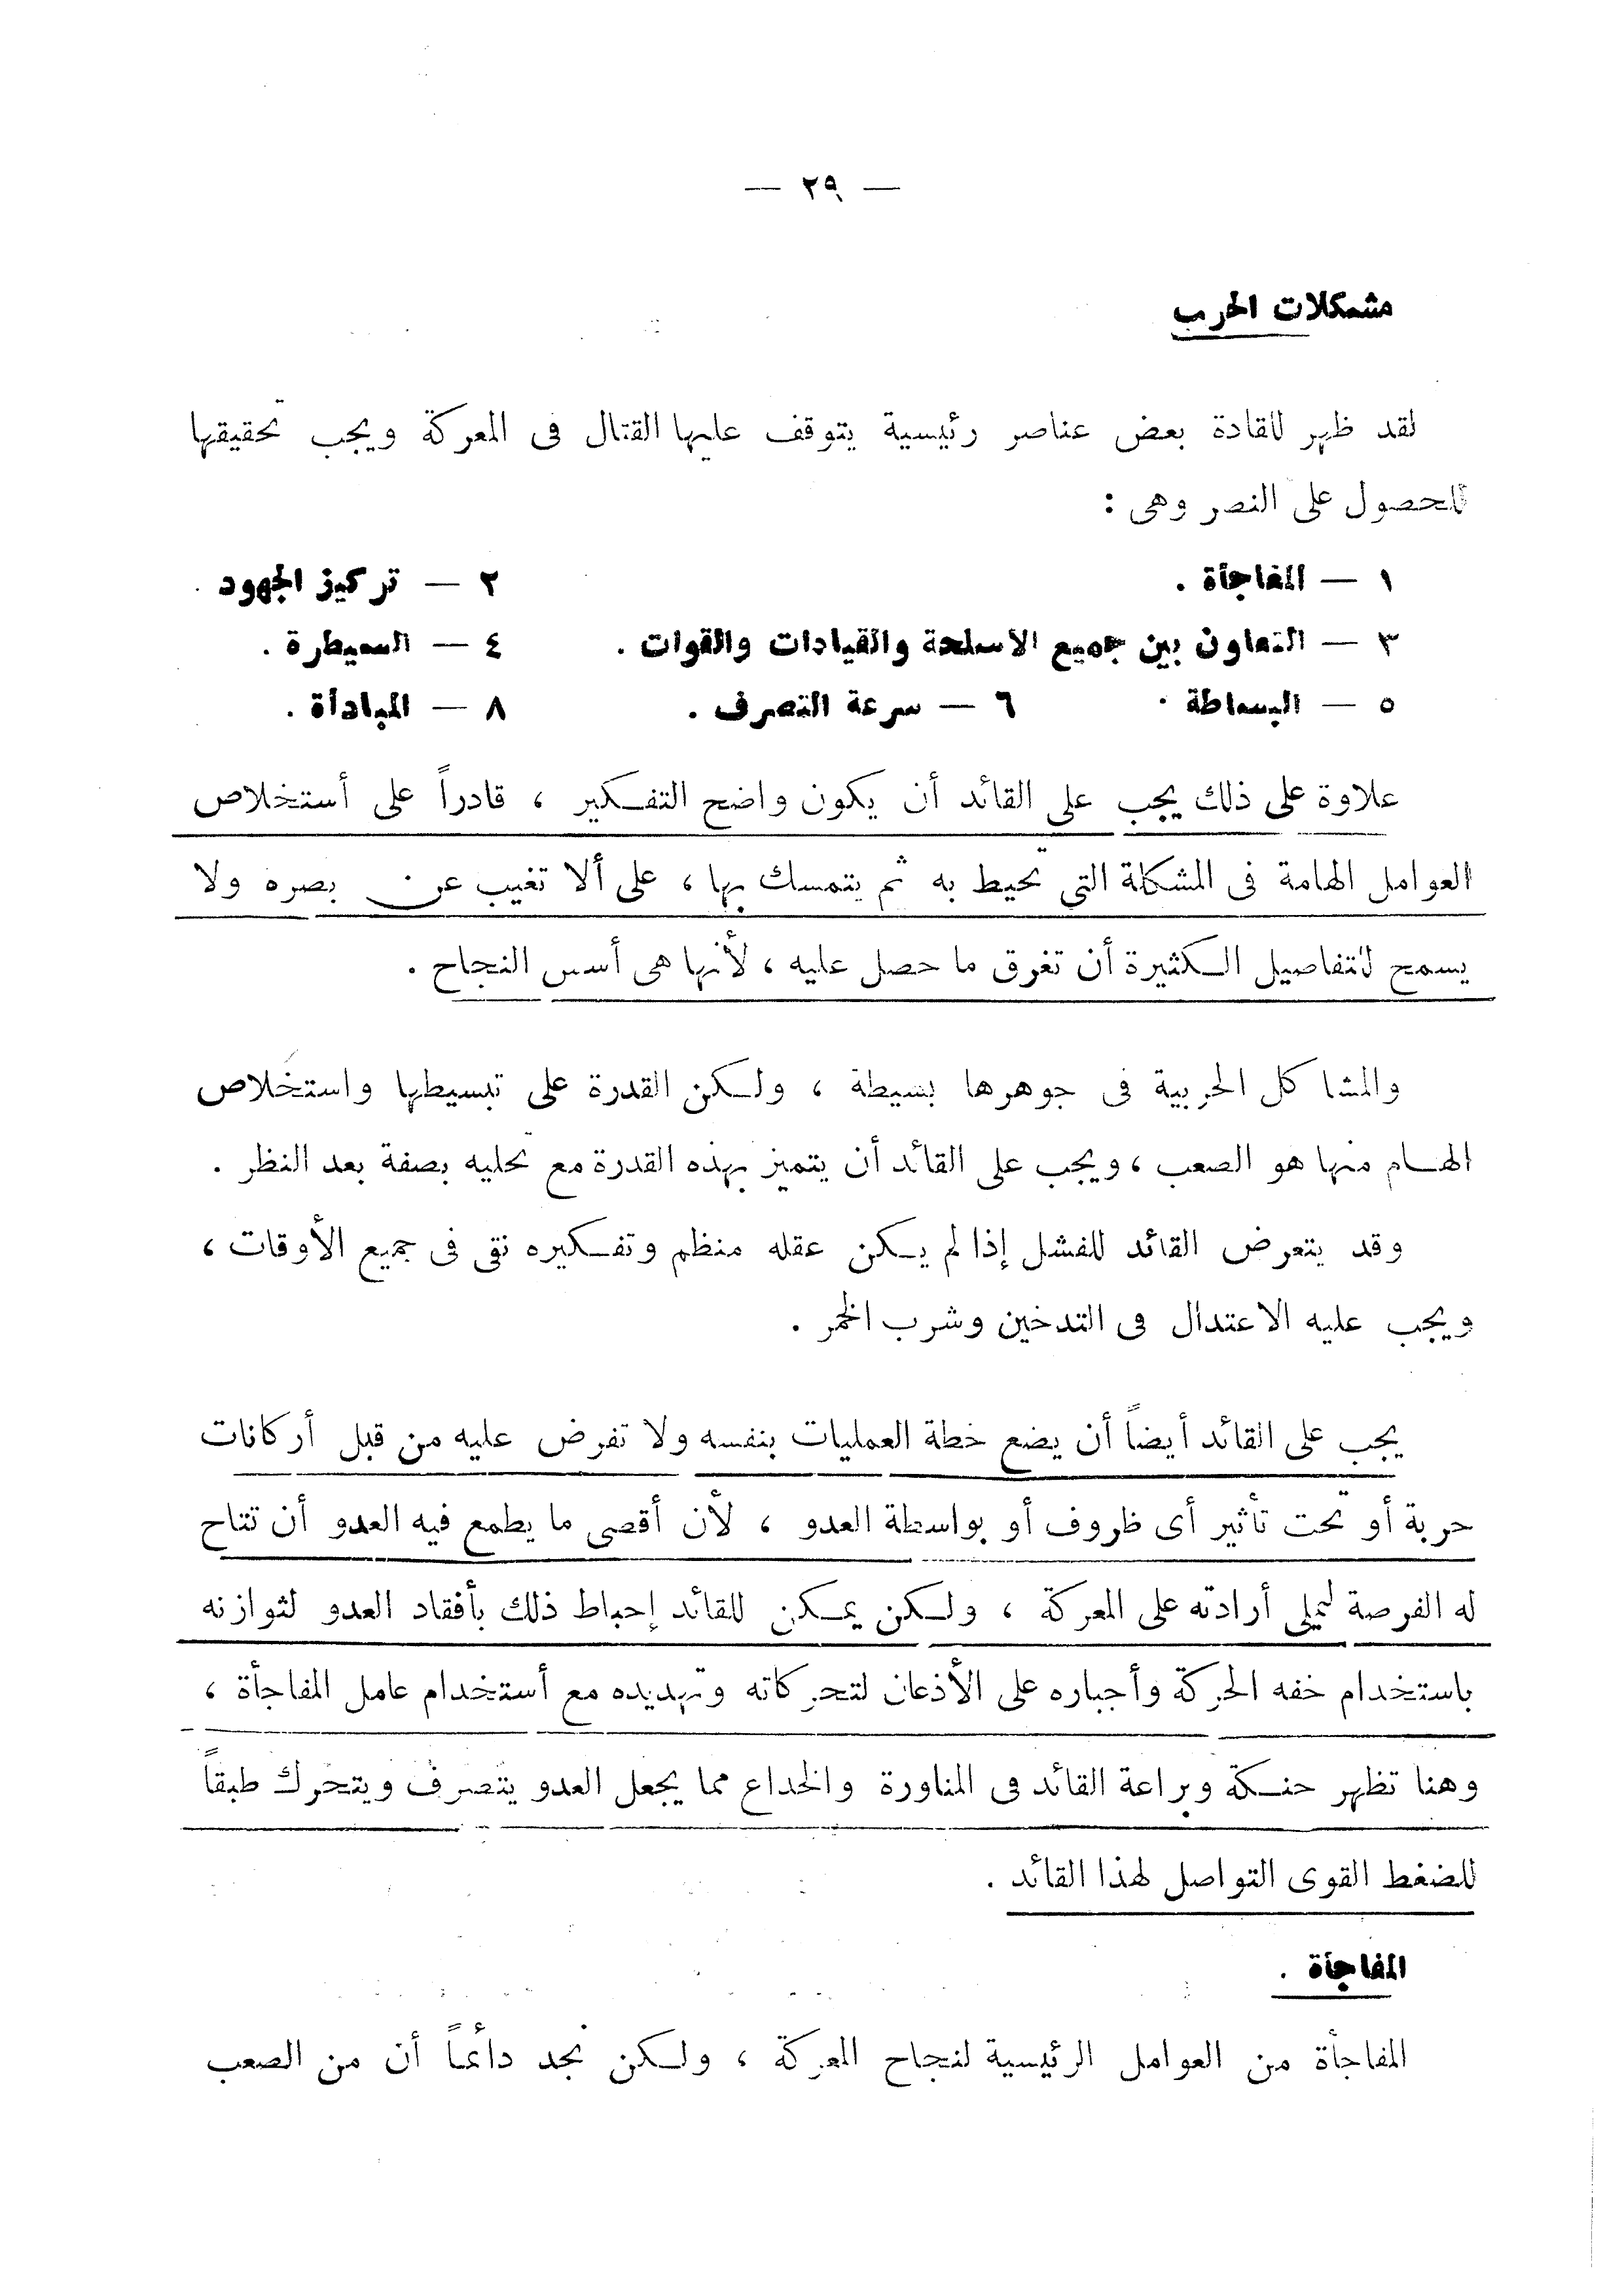 — ٢٩ —
مشكلات الحرب
لقد ظهر للقادة بعض عناصر رئيسية يتوقف عليها القتال فى المعركة ويجب تحقيقها
للحصول على النصر وهى :
١ — المفاجأة . ٢ — تركيز الجهود .
٣ — التعاون بين جميع الاسلحة والقيادات والقوات . ٤ — السيطرة .
٥ — البساطة . ٦ — سرعة التصرف . ٨ — المبادأة .
علاوة على ذلك يجب على القائد أن يكون واضح التفكير ، قادراً على أستخلاص
العوامل الهامة فى المشكلة التى تحيط به ثم يتمسك بها ، على ألا تغيب عن بصره ولا
يسمح للتفاصيل الكثيرة أن تغرق ما حصل عليه ، لأنها هى أسس النجاح .
والمشاكل الحربية فى جوهرها بسيطة ، ولكن القدرة على تبسيطها واستخلاص
الهام منها هو الصعب ، ويجب على القائد أن يتميز بهذه القدرة مع تحليه بصفة بعد النظر .
وقد يتعرض القائد للفشل إذا لم يكن عقله منظم وتفكيره نقى فى جميع الأوقات ،
ويجب عليه الاعتدال فى التدخين وشرب الخمر .
يجب على القائد أيضاً أن يضع خطة العمليات بنفسه ولا تفرض عليه من قبل أركانات
حربة أو تحت تأثير أى ظروف أو بواسطة العدو ، لأن أقصى ما يطمع فيه العدو أن تتاح
له الفرصة ليملى أرادته على المعركة ، ولكن يمكن للقائد إحباط ذلك بأفقاد العدو لثوازنه
باستخدام خفه الحركة وأجباره على الأذعان لتحركاته وتهديده مع أستخدام عامل المفاجأة ،
وهنا تظهر حنكة وبراعة القائد فى المناورة والخداع مما يجعل العدو يتصرف ويتحرك طبقاً
للضغط القوى التواصل لهذا القائد .
المفاجأة .
المفاجأة من العوامل الرئيسية لنجاح المعركة ، ولكن نجد دائماً أن من الصعب